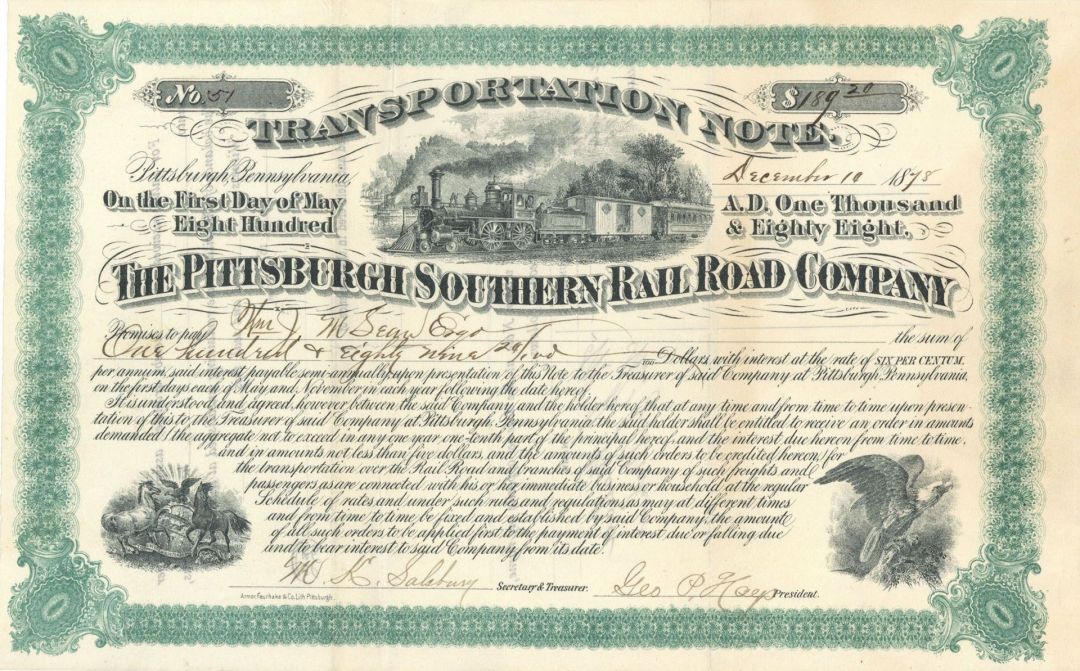 No. 51
$189 20
TRANSPORTATION NOTE.
Pittsburgh, Pennsylvania,
December 10 1878
On the First Day of May
A.D. One Thousand
Eight Hundred
& Eighty Eight,
THE PITTSBURGH SOUTHERN RAIL ROAD COMPANY
Promises to pay Wm J. Esqr the sum of
One hundred & Eighty nine 20/100 100 Dollars, with interest at the rate of SIX PER CENTUM,
per annum, said interest payable semi-annually, upon presentation of this Note to the Treasurer of said Company at Pittsburgh, Pennsylvania,
on the first days each of May and November in each year following the date hereof.
It is understood and agreed, however between the said Company and the holder hereof that at any time and from time to time upon presen-
tation of this to the Treasurer of said Company at Pittsburgh, Pennsylvania the said holder shall be entitled to receive an order in amounts
demanded (the aggregate not to exceed in any one year one-tenth part of the principal hereof, and the interest due hereon from time to time,
and in amounts not less than five dollars, and the amounts of such orders to be credited hereon) for
the transportation over the Rail Road and branches of said Company of such freights and
passengers as are connected with his or her immediate business or household at the regular
Schedule of rates and under such rules and regulations as may at different times
and from time to time be fixed and established by said Company, the amounts
of all such orders to be applied first to the payment of interest due or falling due
and to bear interest to said Company from its date.
Secretary & Treasurer.
Geo P. Hays President.
Armor, Feurhake & Co. Lith. Pittsburgh.